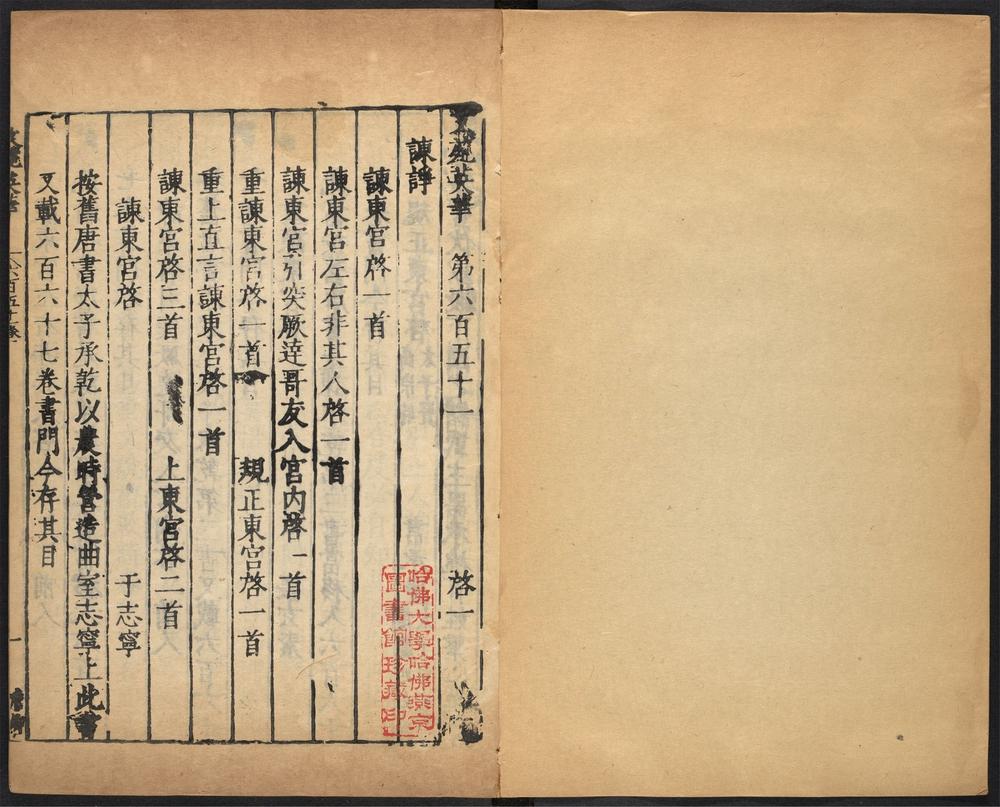 文苑英華 第六百五十一 啓一
諫諍
諫東宮啓一首
諫東宮左右非其人啓一首
諫東宮引突厥達哥友入宮內啓一首
重諫東宮啓一首 規正東宮啓一首
重上直言諫東宮啓一首
諫東宮啓三首 上東宮啓二首
諫東宮啓 于志寧
按舊唐書太子承乾以農時營造曲室志寧上此書
又載六百六十七卷書門今存其目
哈佛大學哈佛燕京
圖書館珍藏印
六百五十一卷
一